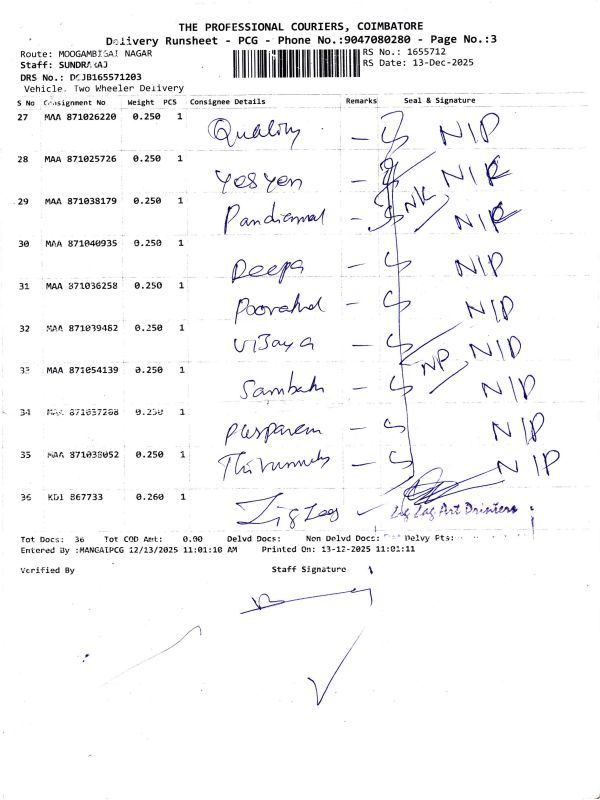 THE PROFESSIONAL COURIERS, COIMBATORE
Delivery Runsheet - PCG - Phone No.:9047080280 - Page No.:3
Route: MOOGAMBIGAI NAGAR
RS No.: 1655712
Staff: SUNDRARAJ
RS Date: 13-Dec-2025
DRS No.: DCJB165571203
Vehicle. Two Wheeler Delivery
S No Consignment No Weight PCS Consignee Details Remarks Seal & Signature
27 MAA 871026220 0.250 1 Quality - N/P
28 MAA 871025726 0.250 1 Yesyen - N/R
29 MAA 871038179 0.250 1 Pandiammal - NR N/R
30 MAA 871040935 0.250 1 Deepa - N/P
31 MAA 871036258 0.250 1 - N/P
32 MAA 871039462 0.250 1 Vijaya - N/P
33 MAA 871054139 0.250 1 - NP N/P
34 0.250 1 - N/P
35 MAA 871038052 0.250 1 - N/P
36 KDI 867733 0.260 1 Zig Zag Zig Zag Art Printers
Tot Docs: 36 Tot COD Amt: 0.00 Delvd Docs: Non Delvd Docs: Delvy Pts:
Entered By :MANGAIPCG 12/13/2025 11:01:10 AM Printed On: 13-12-2025 11:01:11
Verified By Staff Signature